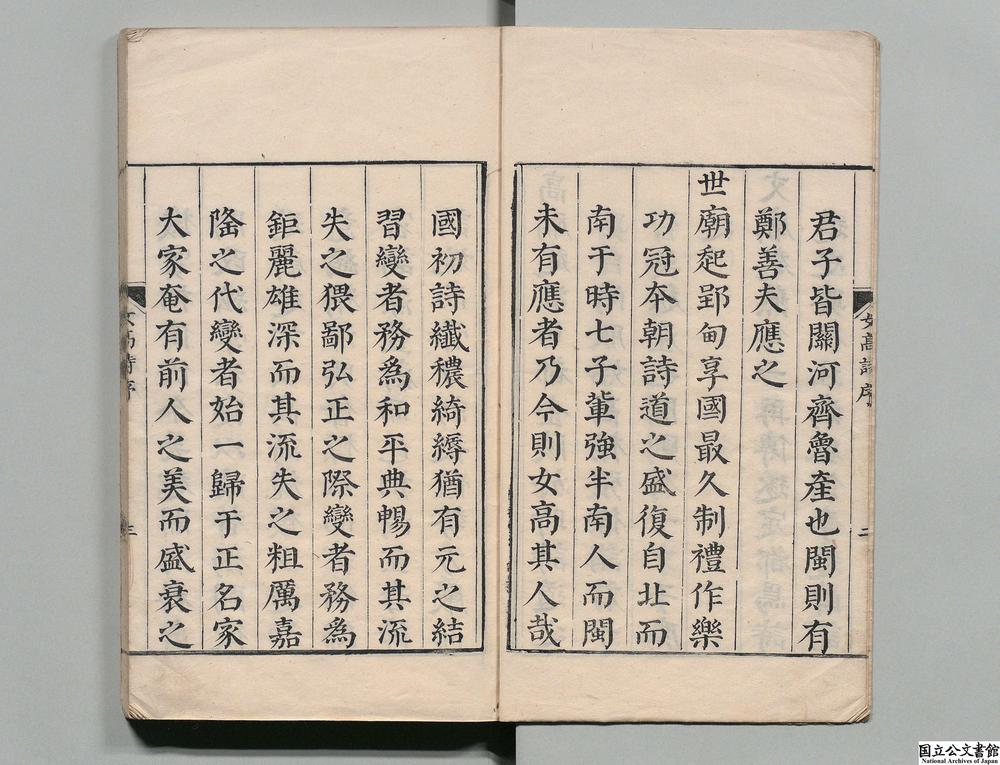 君子皆關河齊魯產也閩則有
鄭善夫應之
世廟起郢甸享國最久制禮作樂
功冠本朝詩道之盛復自北而
南于時七子軰強半南人而閩
未有應者乃今則女高其人哉
女高詩序
二
國初詩纖穠綺縟猶有元之結
習變者務為和平典暢而其流
失之猥鄙弘正之際變者務為
鉅麗雄深而其流失之粗厲嘉
隆之代變者始一歸于正名家
大家奄有前人之美而盛衰之
女高詩序
三
国立公文書館
National Archives of Japan